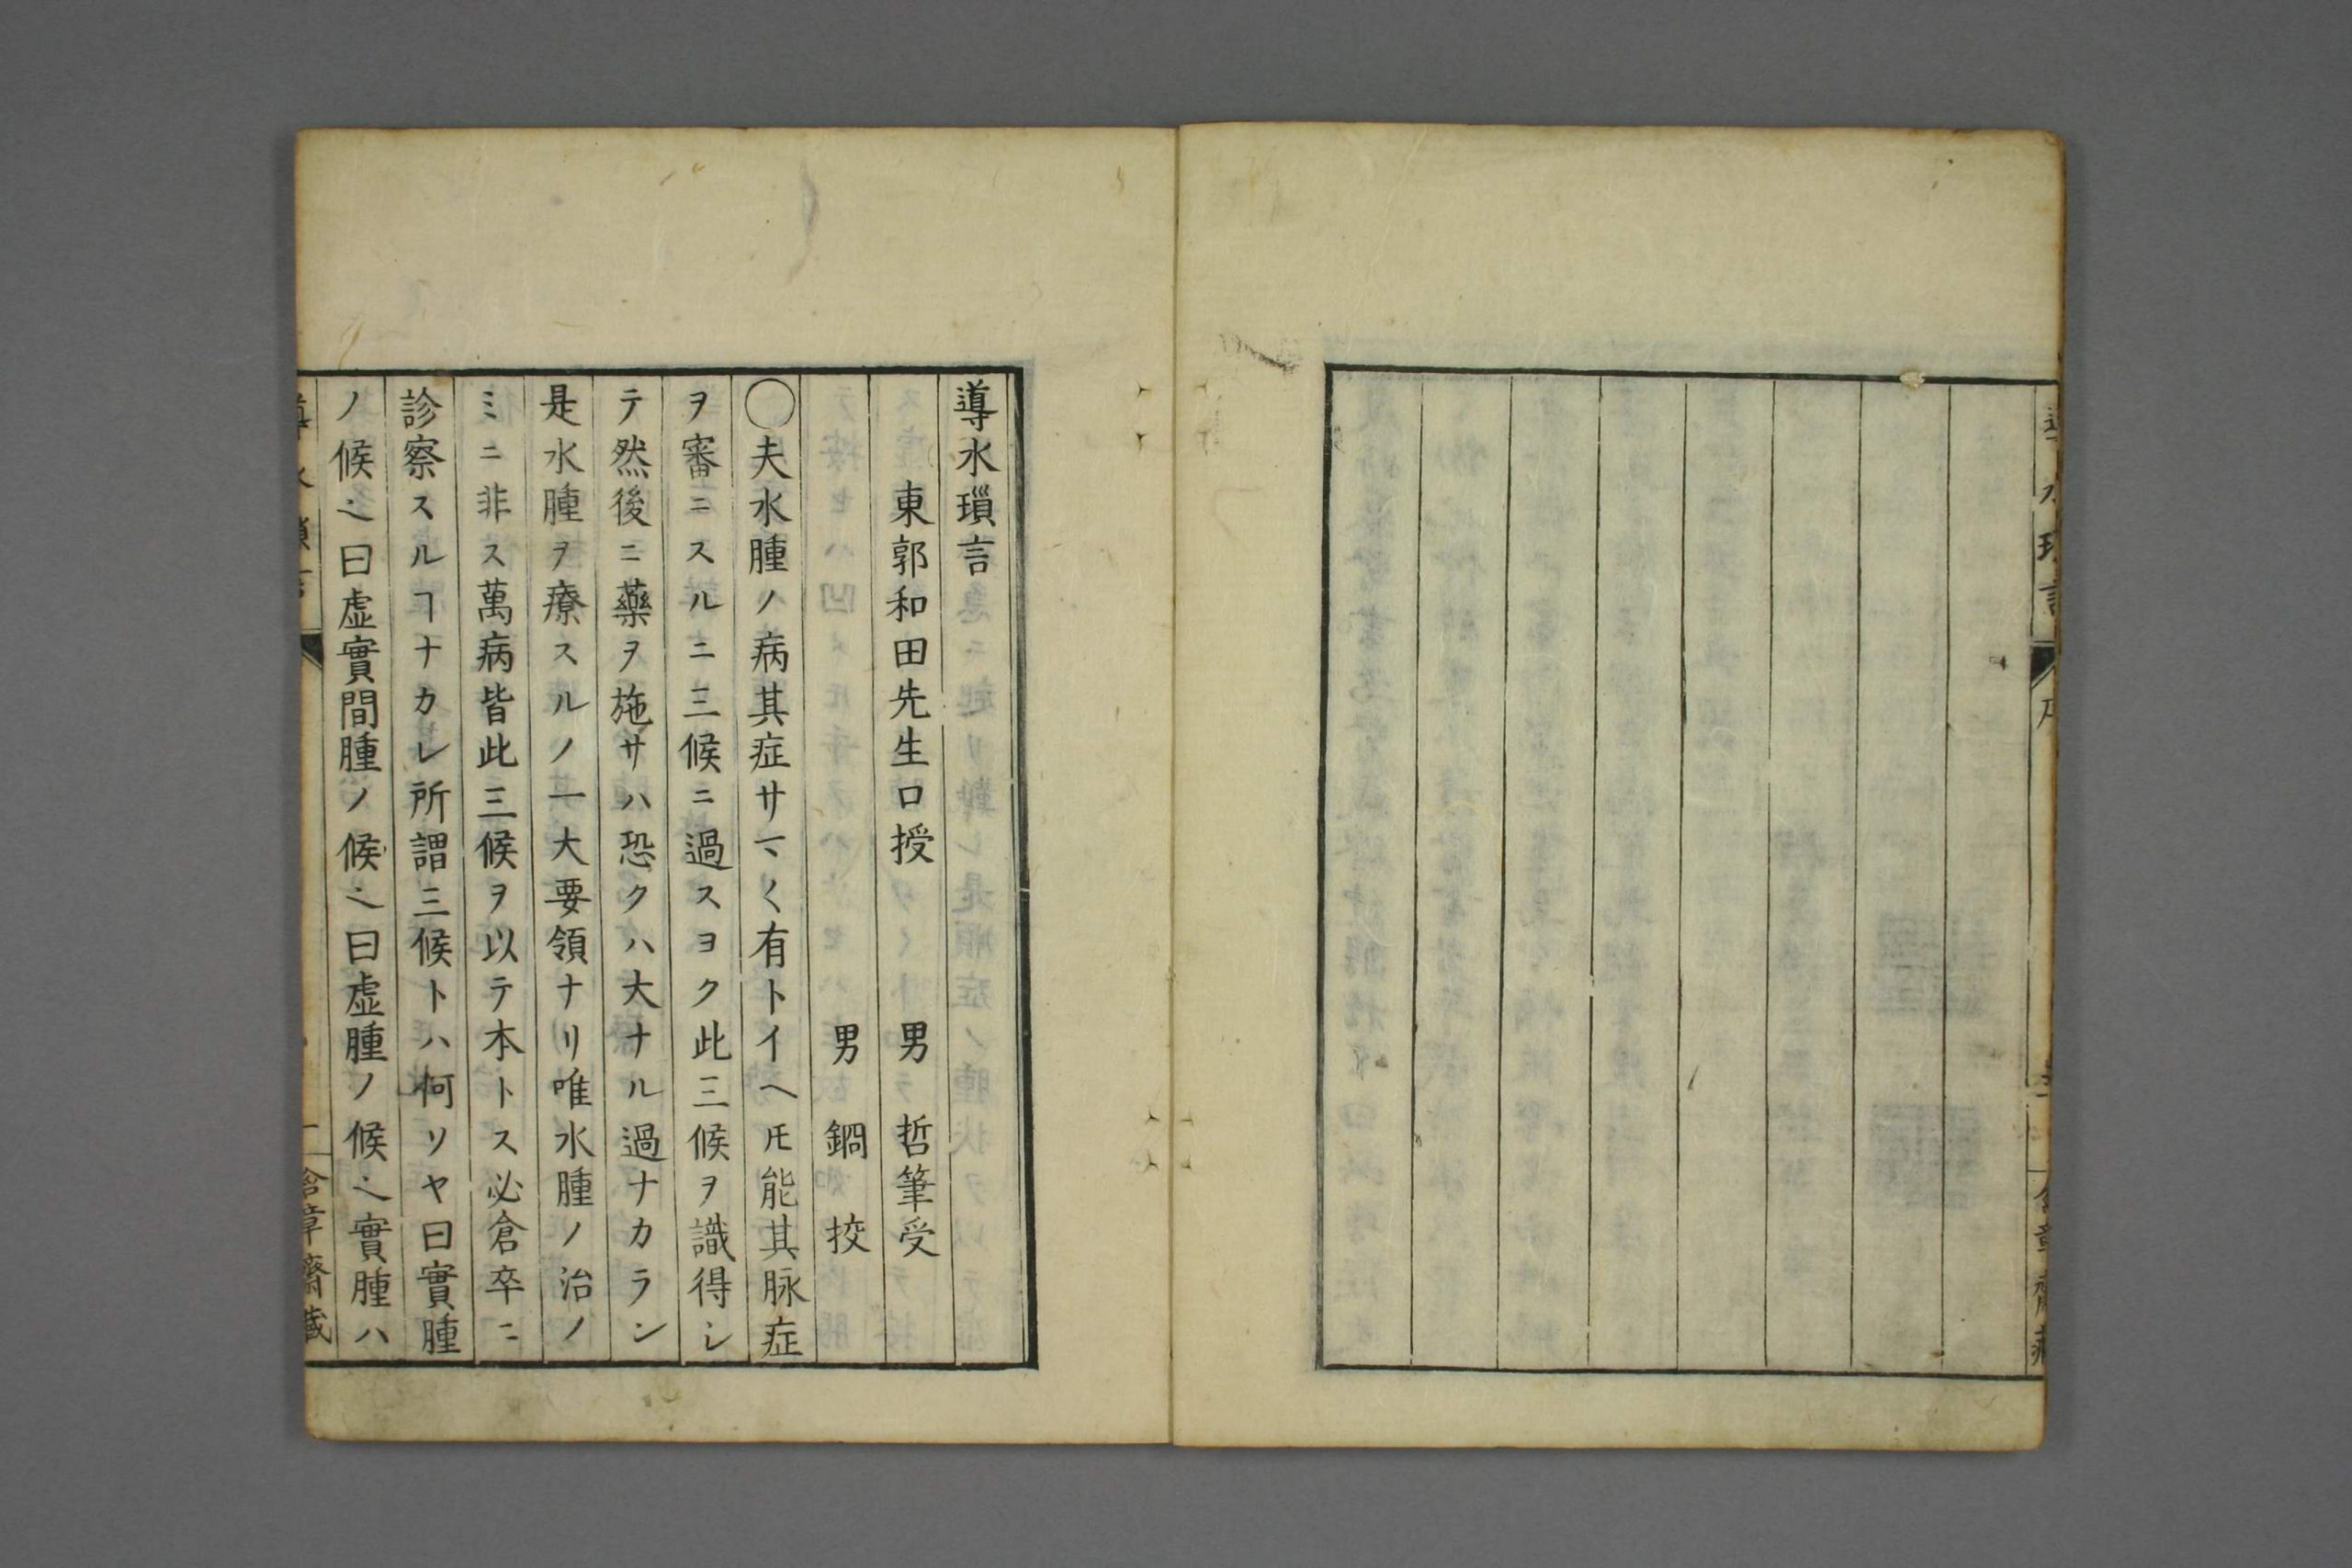 導水瑣言
東郭和田先生口授　男　哲筆受
男　鍋　挍
〇夫水腫ノ病其症サマ〱有トイヘ𪜈能其脉症
ヲ審ニスルニ三候ニ過スヨク此三候ヲ識得シ
テ然後ニ藥ヲ施サハ恐クハ大ナル過ナカラン
是水腫ヲ療スルノ一大要領ナリ唯水腫ノ治ノ
ミニ非ス萬病皆此三候ヲ以テ本トス必倉卒ニ
診察スルヿナカレ所謂三候トハ何リヤ曰實腫
ノ候之曰虚實間腫ノ候之曰虚腫ノ候之實腫ハ